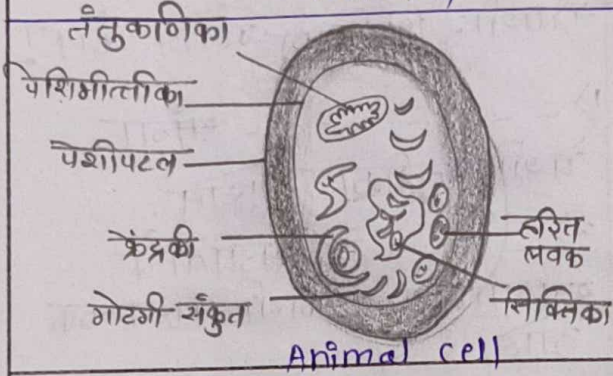 तंतुकणिका
पेशिभीत्तीका
पेशीपटल
केंद्रकी
गोल्गी संकुल
हरित
लवक
रिक्तिका
Animal cell